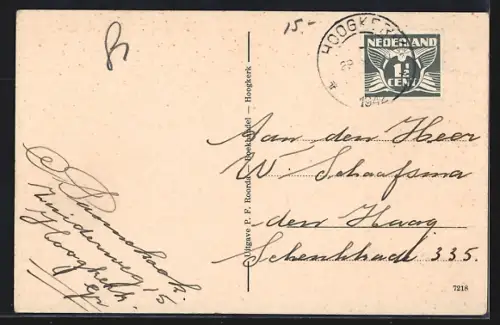 15.-
HOOGKER
1942
NEDERLAND
1½
CENT
Aan den Heer
W. Schaafsma
den Haag
Schenkkade 335.
Uitgave P. F. Roorda - Boekhandel - Hoogkerk
Zuiderweg 15
Hoogkerk
gr.
7218